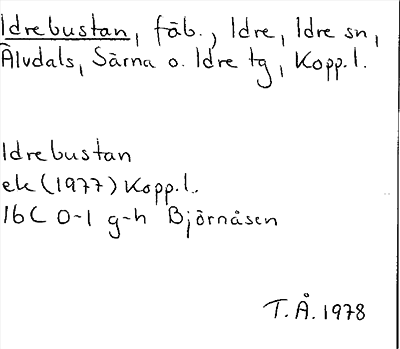 Idrebustan, fäb., Idre, Idre sn,
Älvdals, Särna o. Idre tg, Kopp.l.
Idrebustan
ek (1977) Kopp.l.
16C 0-1 g-h Björnåsen
T.Å. 1978